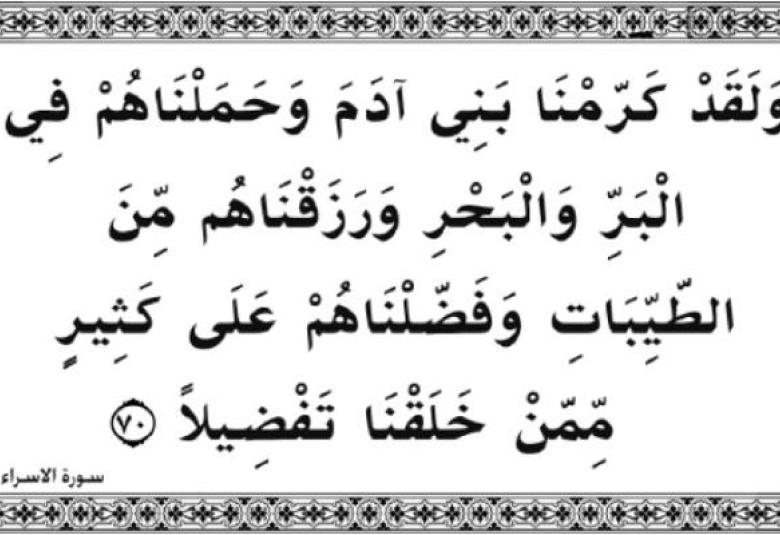 وَلَقَدْ كَرَّمْنَا بَنِي آدَمَ وَحَمَلْنَاهُمْ فِي
الْبَرِّ وَالْبَحْرِ وَرَزَقْنَاهُم مِّنَ
الطَّيِّبَاتِ وَفَضَّلْنَاهُمْ عَلَى كَثِيرٍ
مِّمَّنْ خَلَقْنَا تَفْضِيلاً ﴿٧٠﴾
سورة الاسراء